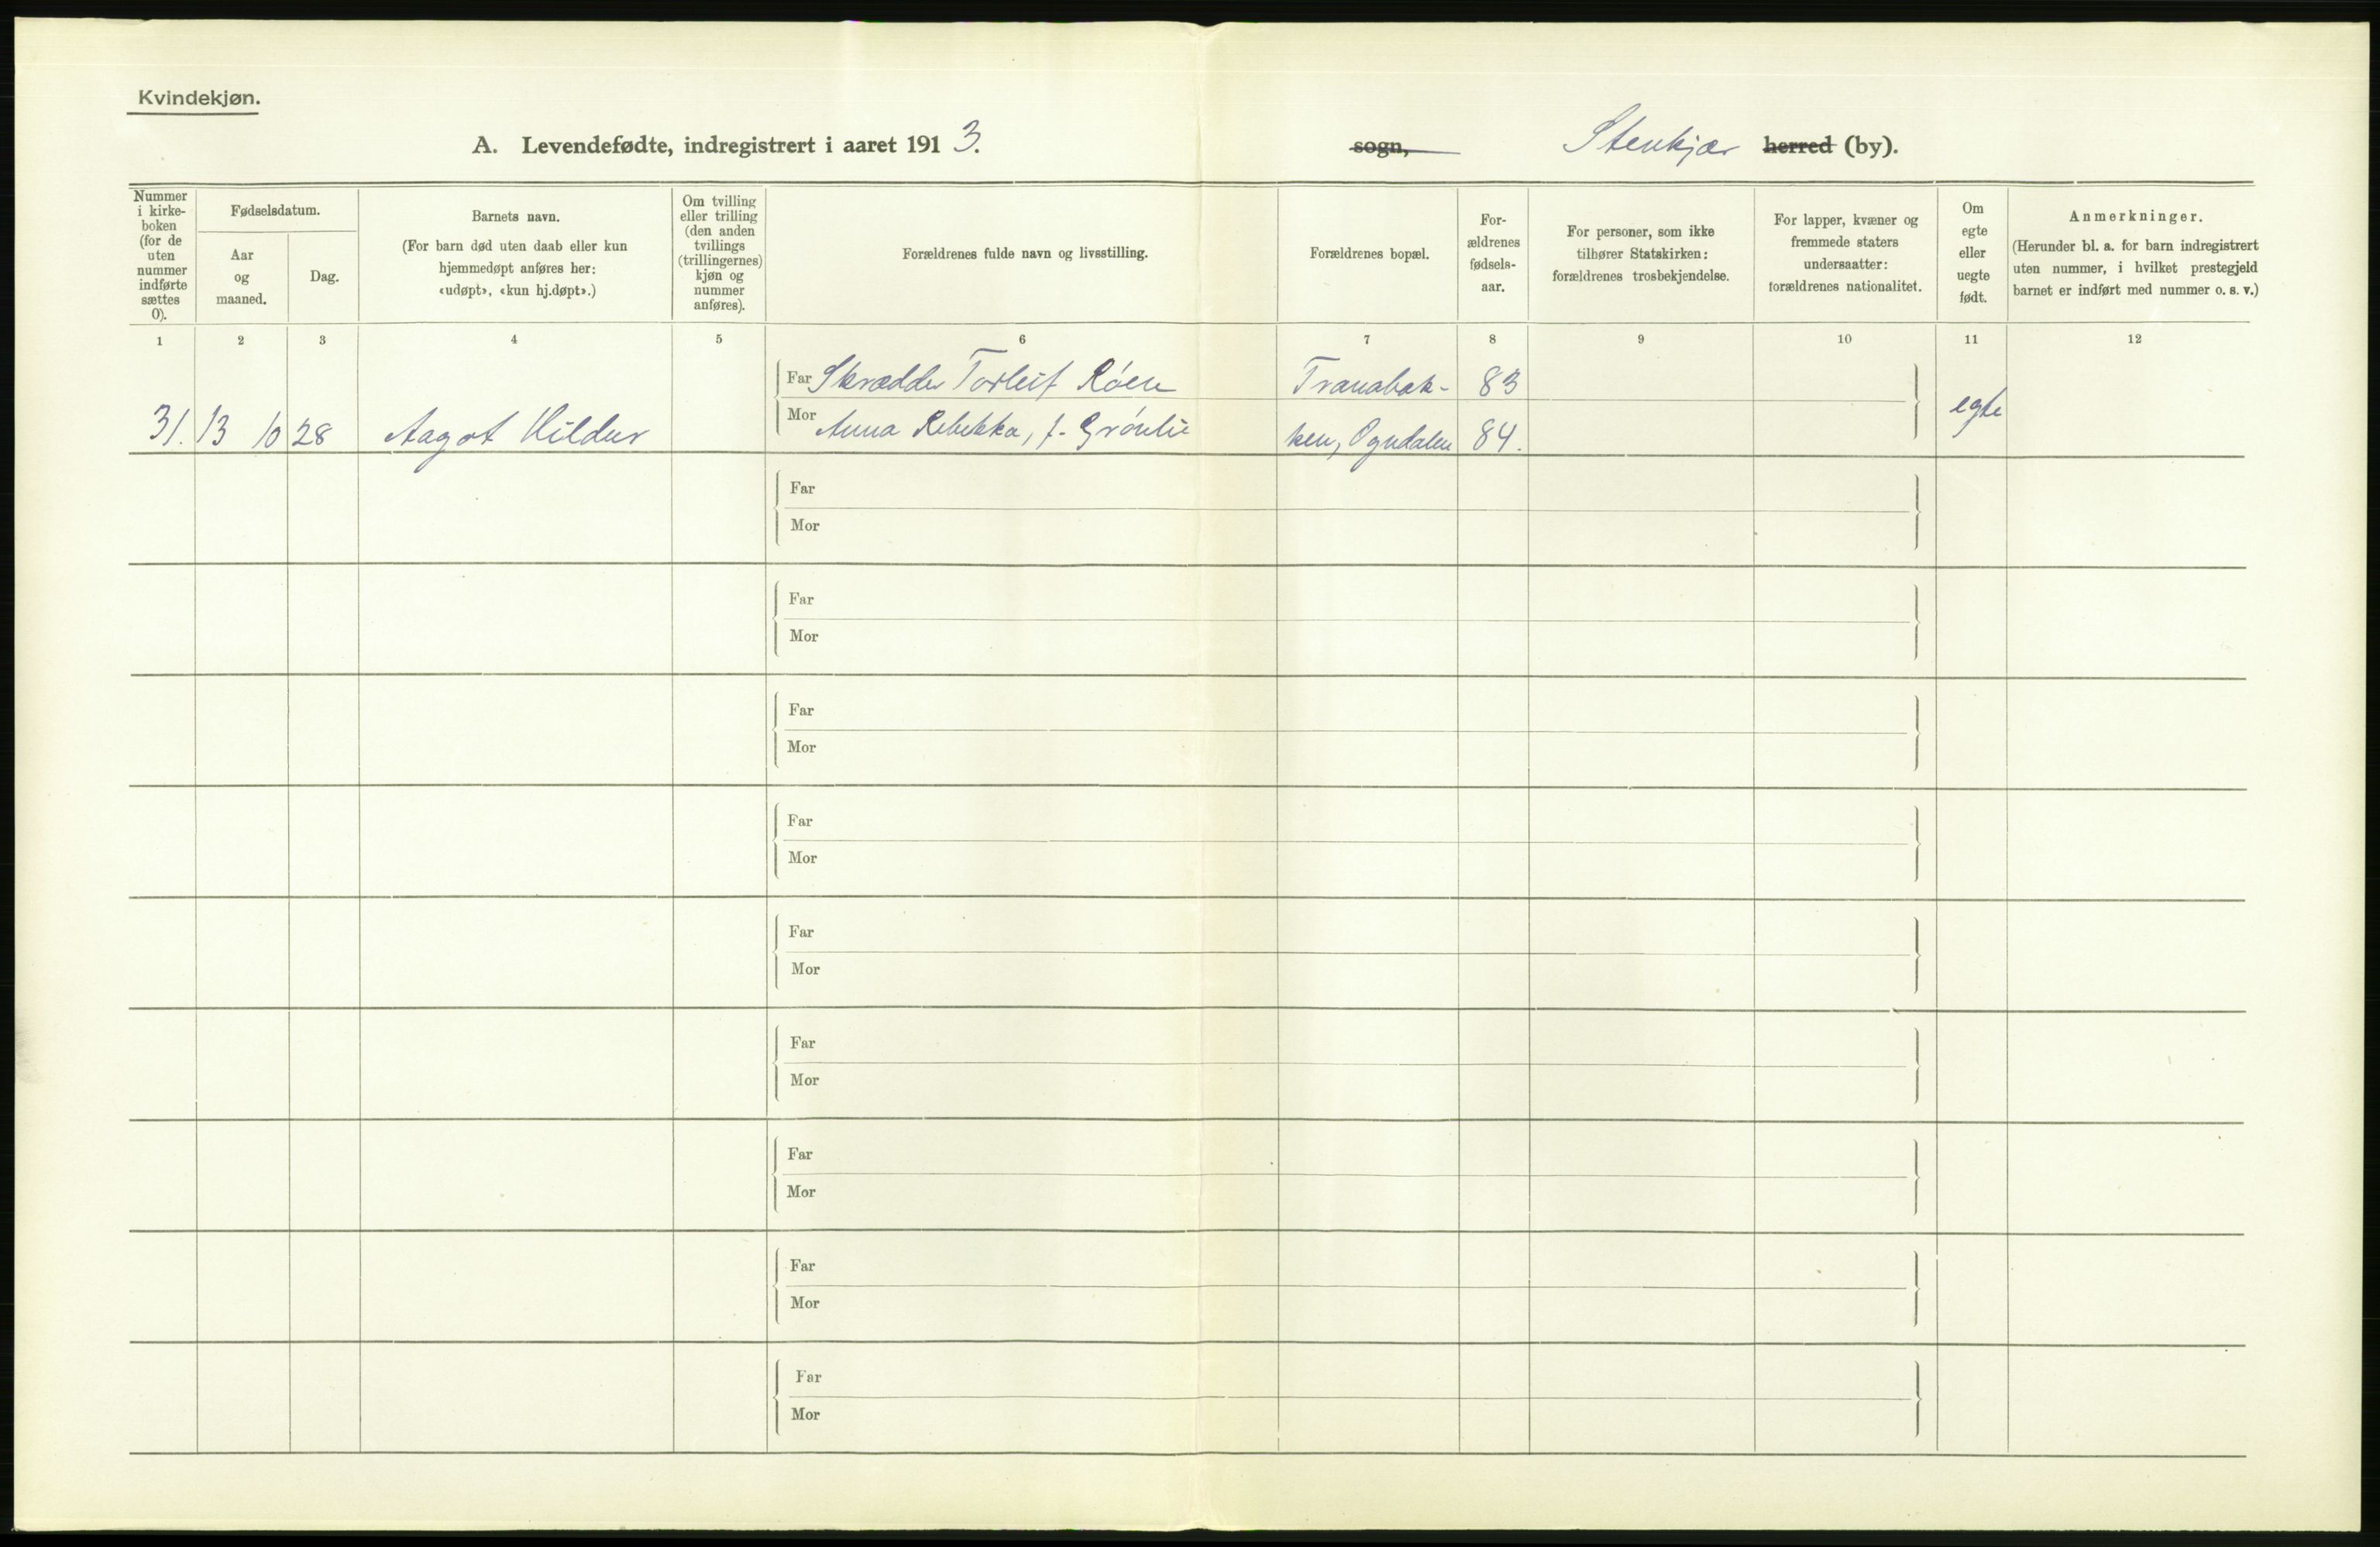 Kvindekjøn.
A. Levendefødte, indregistrert i aaret 1913. sogn, Stenkjær herred (by).
Nummer
i kirke-
boken
(for de
uten
nummer
indførte
sættes
0).
Fødselsdatum.
Aar
og
maaned.
Dag.
Barnets navn.
(For barn død uten daab eller kun
hjemmedøpt anføres her:
«udøpt», «kun hj.døpt».)
Om tvilling
eller trilling
(den anden
tvillings
(trillingernes)
kjøn og
nummer
anføres).
Forældrenes fulde navn og livsstilling.
Forældrenes bopæl.
For-
ældrenes
fødsels-
aar.
For personer, som ikke
tilhører Statskirken:
forældrenes trosbekjendelse.
For lapper, kvæner og
fremmede staters
undersaatter:
forældrenes nationalitet.
Om
egte
eller
uegte
født.
Anmerkninger.
(Herunder bl. a. for barn indregistrert
uten nummer, i hvilket prestegjeld
barnet er indført med nummer o. s. v.)
1 2 3 4 5 6 7 8 9 10 11 12
Far Skrædder Torleif Röen Tranabak- 83
31. 13 10 28 Aagot Hildur Mor Anna Rebekka, f. Grönlie ken, Ogndalen 84. egte
Far
Mor
Far
Mor
Far
Mor
Far
Mor
Far
Mor
Far
Mor
Far
Mor
Far
Mor
Far
Mor